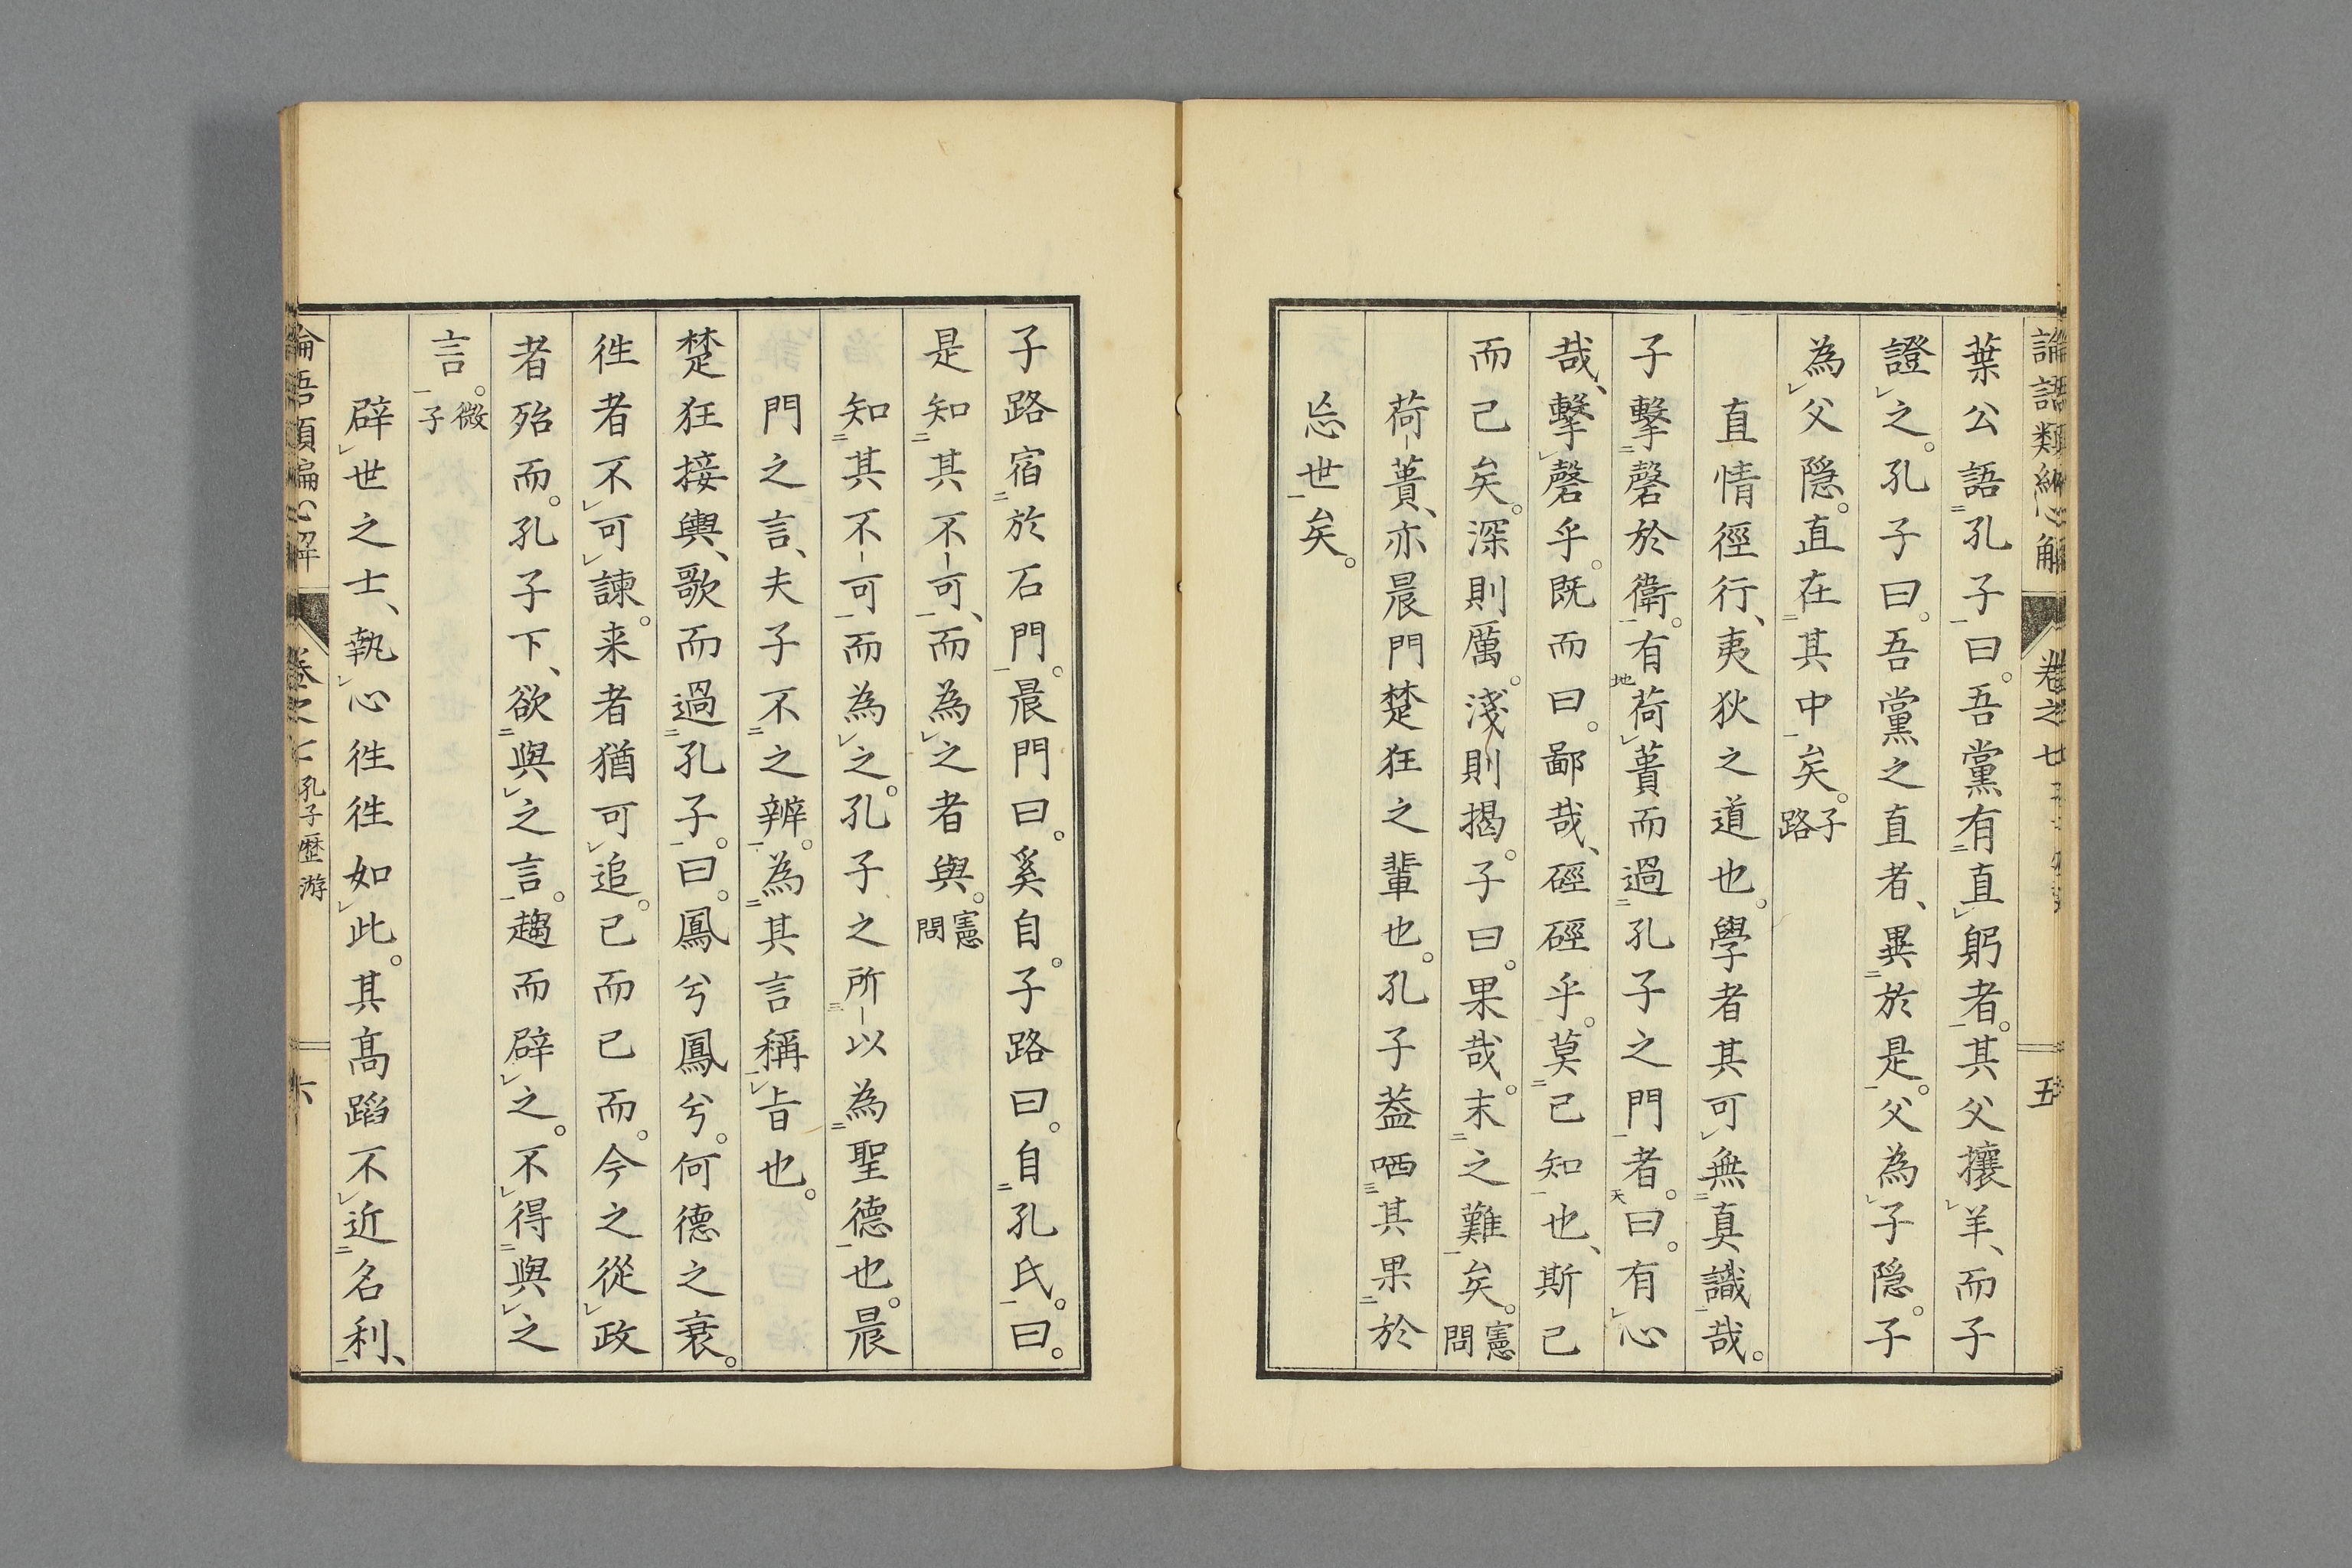 論語類編心解 卷之七 五
葉公語孔子曰。吾黨有直躬者。其父攘羊、而子
證之。孔子曰。吾黨之直者、異於是。父為子隠。子
為父隠。直在其中矣。子路
直情徑行、夷狄之道也。學者其可無真識哉。
子擊磬於衛。有荷蕢而過孔子之門者。曰。有心
哉、擊磬乎。既而曰。鄙哉、硜硜乎。莫己知也、斯己
而已矣。深則厲。淺則揭。子曰。果哉。末之難矣。憲問
荷蕢、亦晨門楚狂之輩也。孔子葢哂其果於
忘世矣。
子路宿於石門。晨門曰。奚自。子路曰。自孔氏。曰。
是知其不可、而為之者與。憲問
知其不可而為之。孔子之所以為聖德也。晨
門之言、夫子不之辨。為其言稱旨也。
楚狂接輿、歌而過孔子。曰。鳳兮鳳兮。何德之衰。
徃者不可諫。来者猶可追。已而已而。今之從政
者殆而。孔子下、欲與之言。趨而辟之。不得與之
言。微子
辟世之士、執心徃徃如此。其髙蹈不近名利、
論語類編心解 卷之七 孔子歷游 六